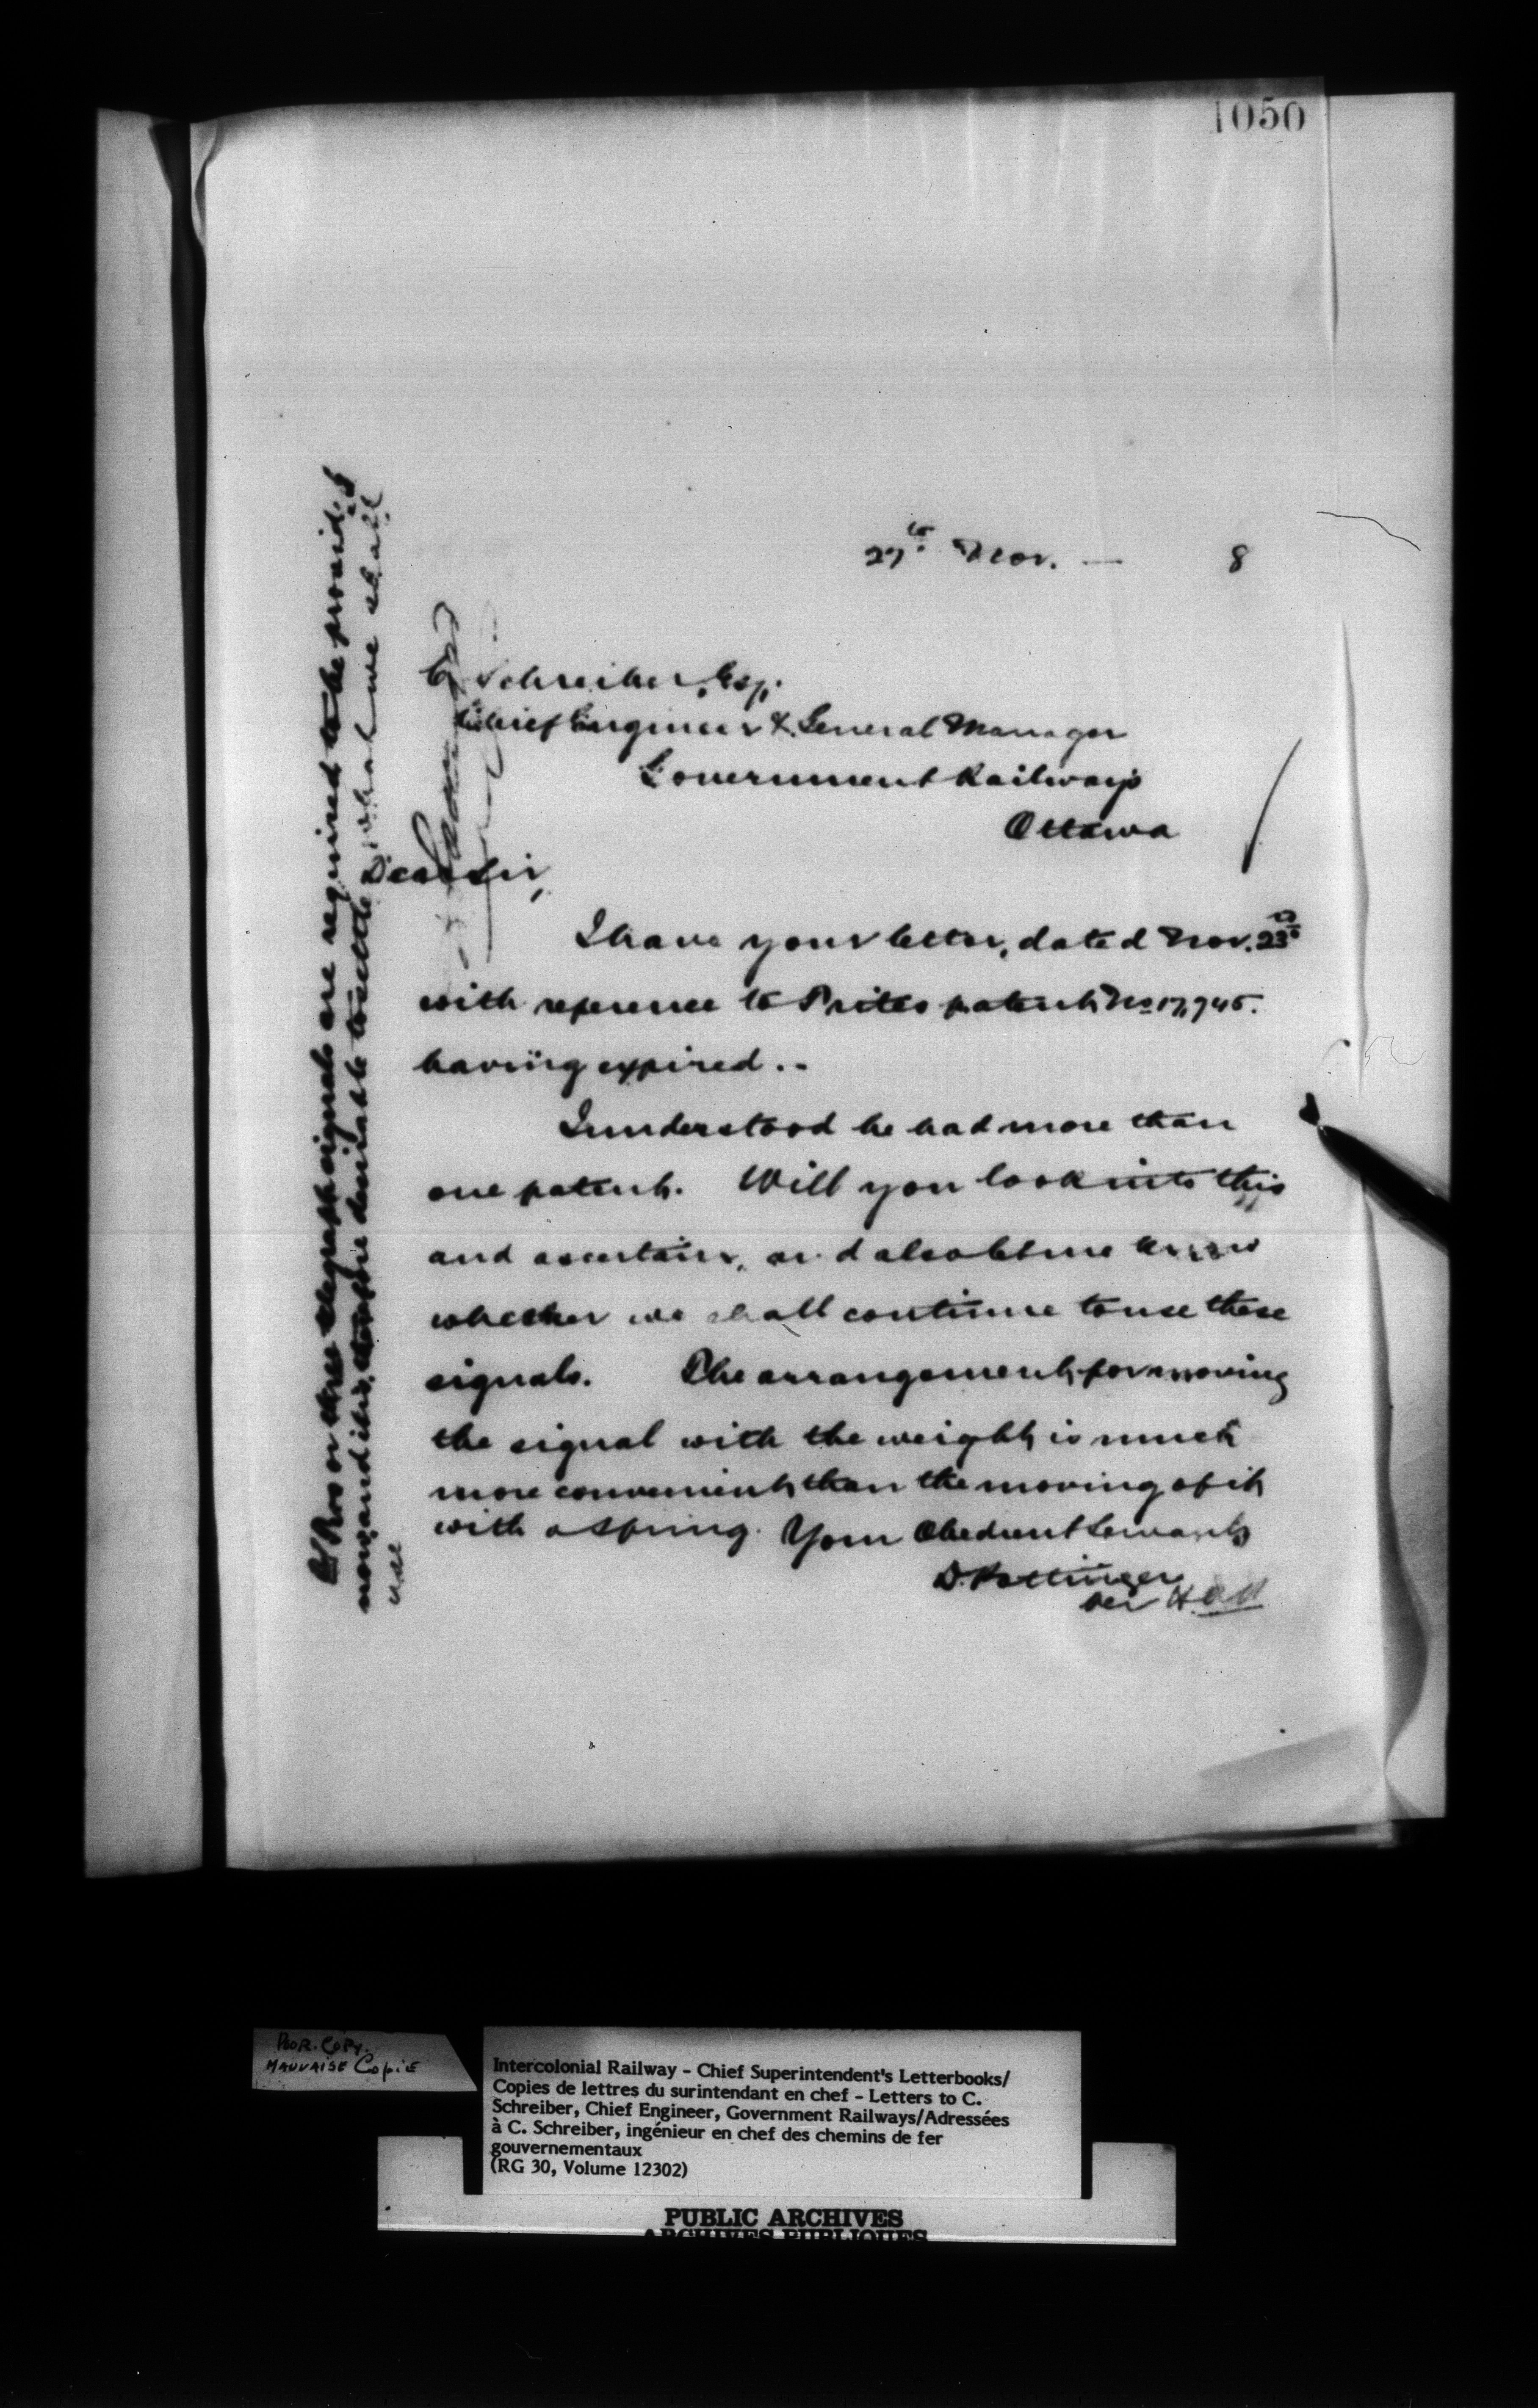 1050
27th Nov. — 8
C. Schreiber, Esq.
Chief Engineer & General Manager
Government Railways
Ottawa
Dear Sir,
I have your letter, dated Nov. 23d
with reference to patent No 17,745.
having expired. -
I understood he had more than
one patent. Will you look into this
and ascertain, and also let me know
whether we shall continue to use these
signals. The arrangement for moving
the signal with the weight is much
more convenient than the moving of it
with a spring. Your Obedient Servant
D. Pottinger
per
Two or three telegraph signals are required to be provided
now, and it is therefore desirable to settle what we shall
use
POOR COPY.
MAUVAISE COPIE
Intercolonial Railway - Chief Superintendent's Letterbooks/
Copies de lettres du surintendant en chef - Letters to C.
Schreiber, Chief Engineer, Government Railways/Adressées
à C. Schreiber, ingénieur en chef des chemins de fer
gouvernementaux
(RG 30, Volume 12302)
PUBLIC ARCHIVES
ARCHIVES PUBLIQUES